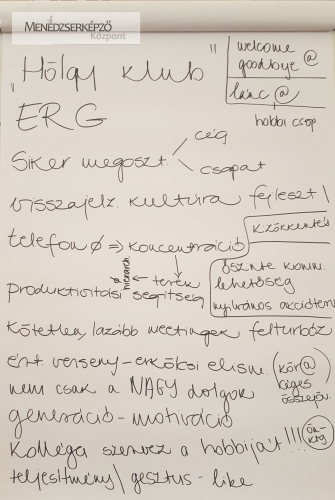 MENEDZSERKÉPZŐ
Központ
"Hölgy klub"
welcome
goodbye @
lánc @
hobbi csop.
ERG
Siker megoszt.
cég
csapat
visszajelz. kultúra fejleszt \
telefon ∅ ⇒ koncentráció
KZÖKKENTÉS
hierarch
∅ ← terek
produktivitási segítség
őszinte komm.
lehetőség
nyilvános akcióterv
kötetlen, lazább meetingek felturbóz
ért. verseny-erkölcsi elism.
kör@
céges
összejöv.
nem csak a NAGY dolgok
generáció - motiváció
kolléga szervez a hobbiját!!!
ön-
kts
teljesítmény \ gesztus - like